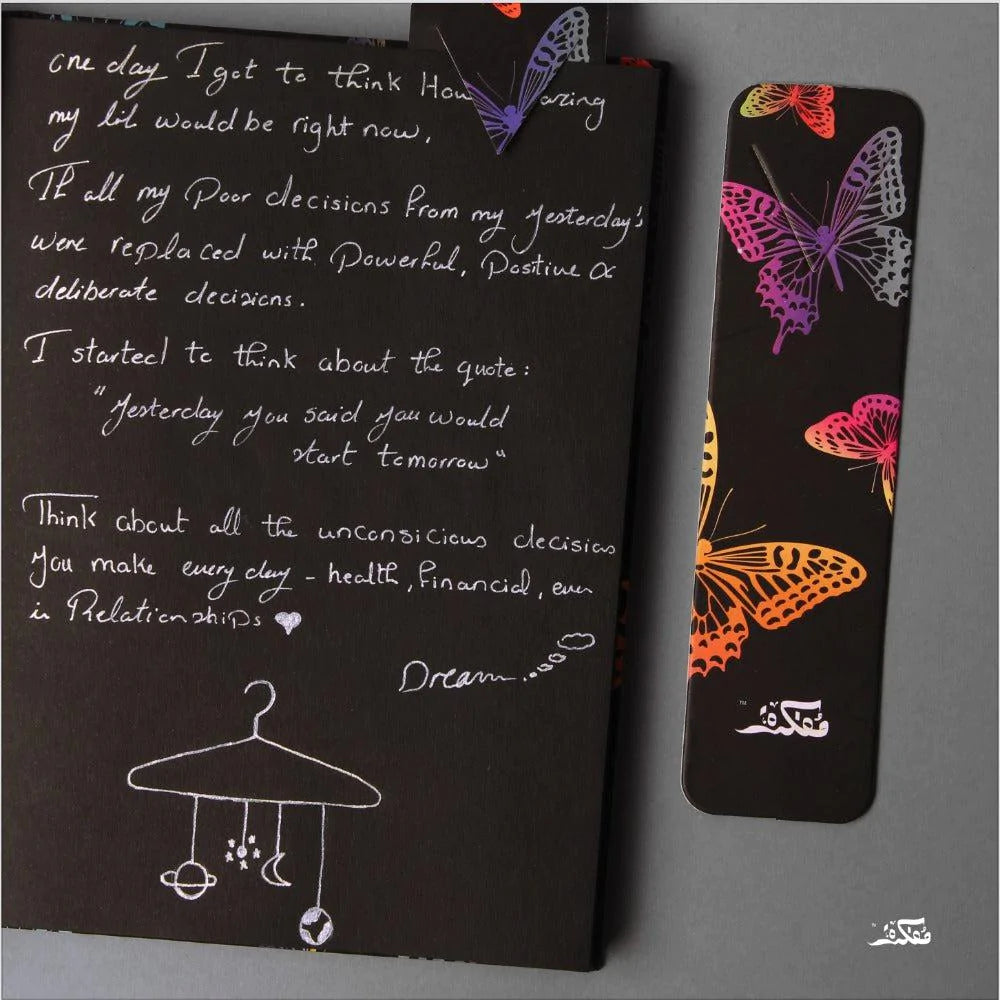 one day I got to think How
my lif would be right now.
If all my Poor decisions from my yesterday's
were replaced with Powerful, Positive &
deliberate decisions.
I started to think about the quote:
"Yesterday you said you would
start tomorrow"
Think about all the unconsicious decisions
You make every day - health, financial, even
in Relationships
Dream
مفكرة
TM
مفكرة
TM